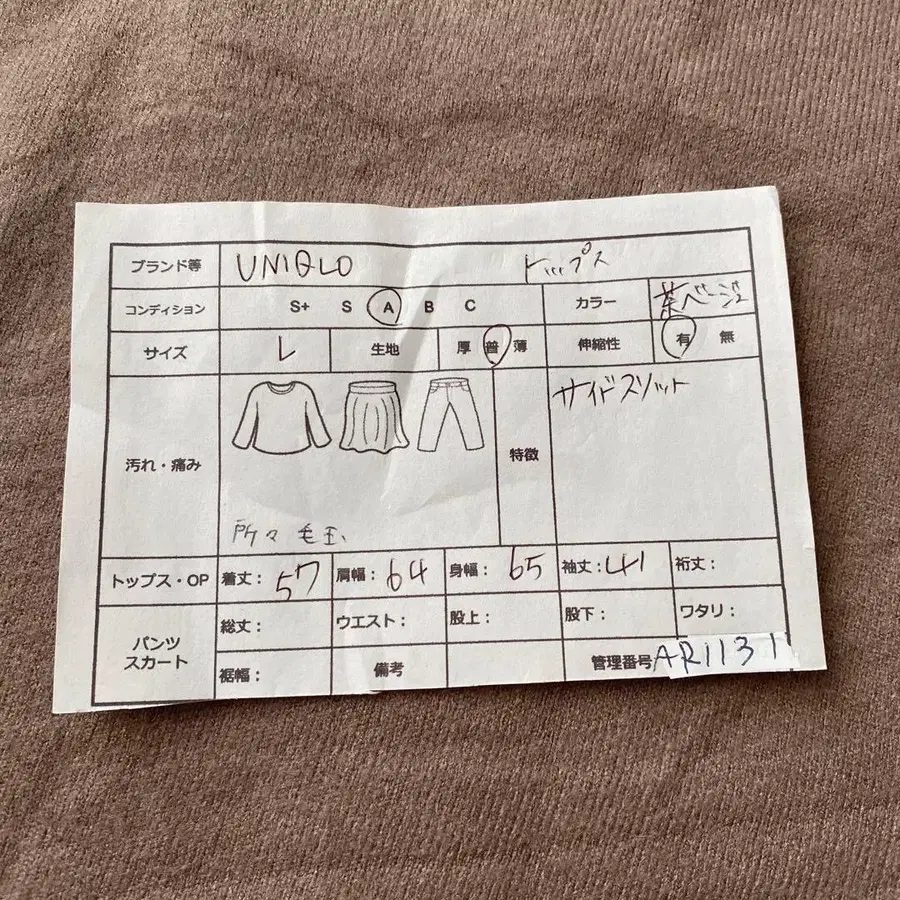 ブランド等 UNIQLO トップス
コンディション S+ S A B C カラー 茶ベージュ
サイズ L 生地 厚 普 薄 伸縮性 有 無
汚れ・痛み 特徴 サイドスリット
所々毛玉
トップス・OP 着丈: 57 肩幅: 64 身幅: 65 袖丈: 41 裄丈:
パンツ スカート 総丈: ウエスト: 股上: 股下: ワタリ:
裾幅: 備考 管理番号 AR11311